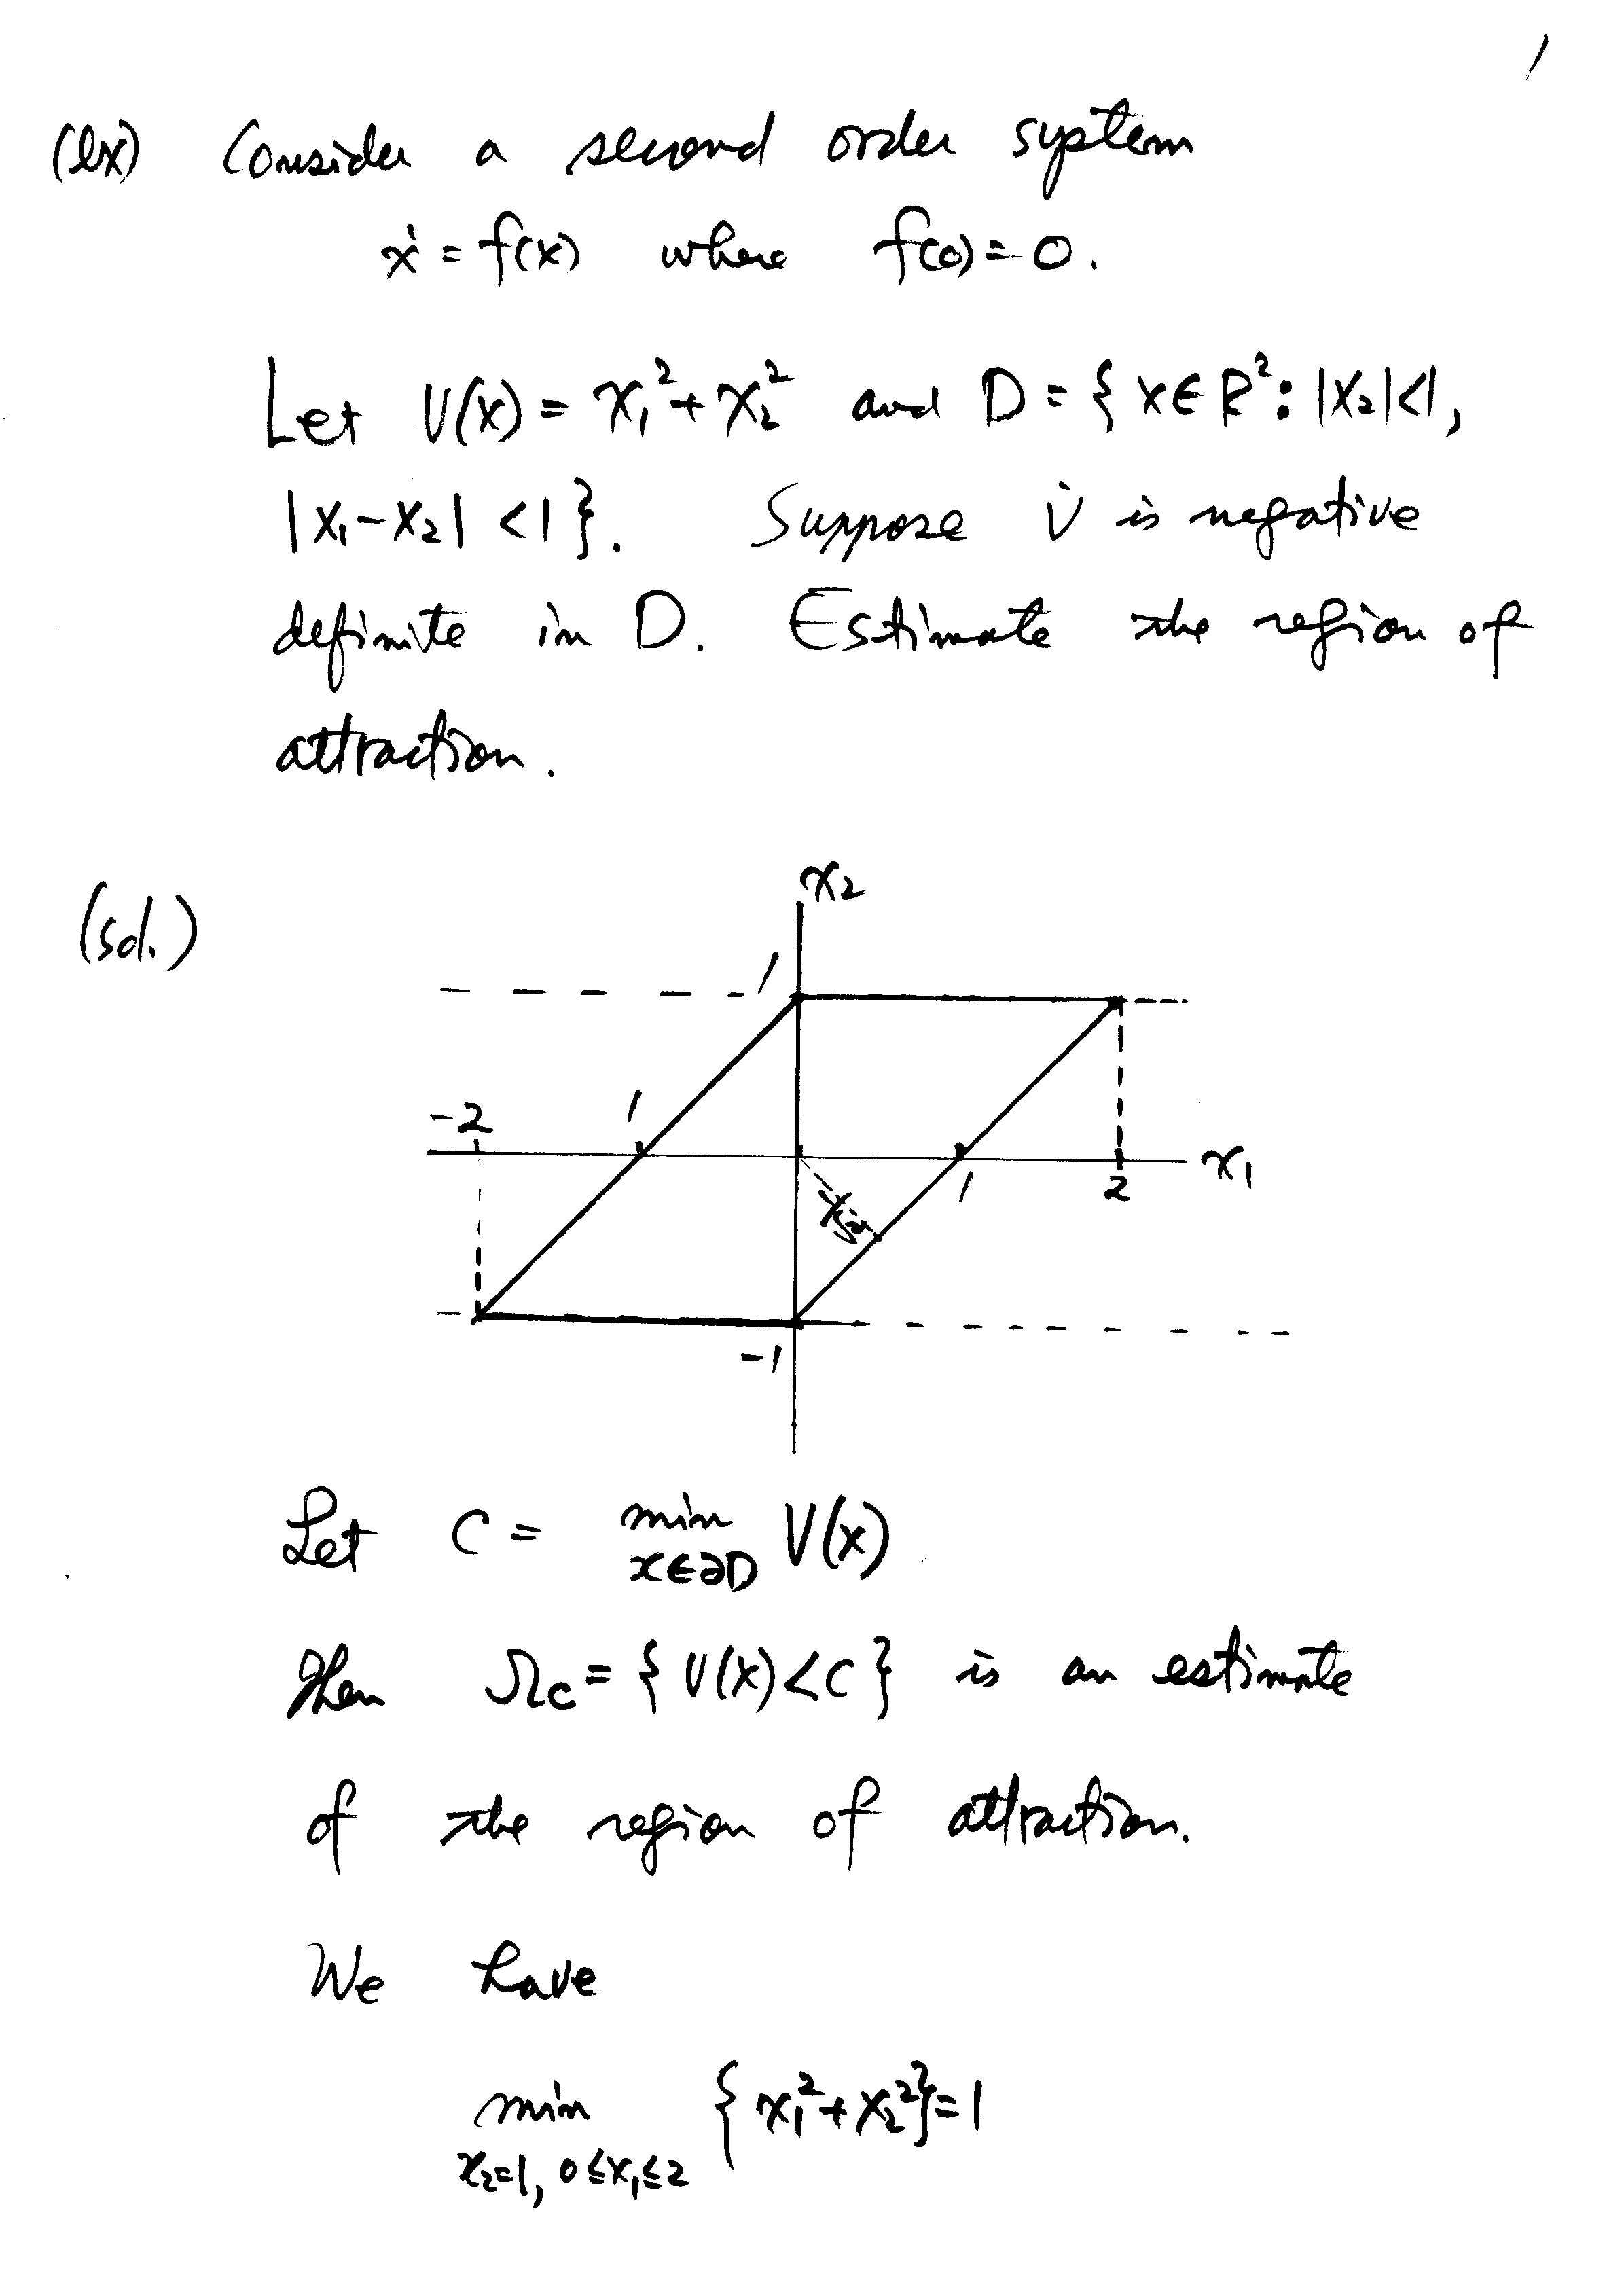 1
(ex) Consider a second order system
ẋ = f(x) where f(0) = 0.
Let V(x) = x₁² + x₂² and D = { x ∈ R² : |x₂| < 1,
|x₁ - x₂| < 1 }. Suppose V̇ is negative
definite in D. Estimate the region of
attraction.
(sol.)
x₂
1
-2 1
x₁
1 2
1/√2
-1
Let C = min V(x)
x ∈ ∂D
Then Ω_C = { V(x) < C } is an estimate
of the region of attraction.
We have
min { x₁² + x₂² } = 1
x₂=1, 0 ≤ x₁ ≤ 2